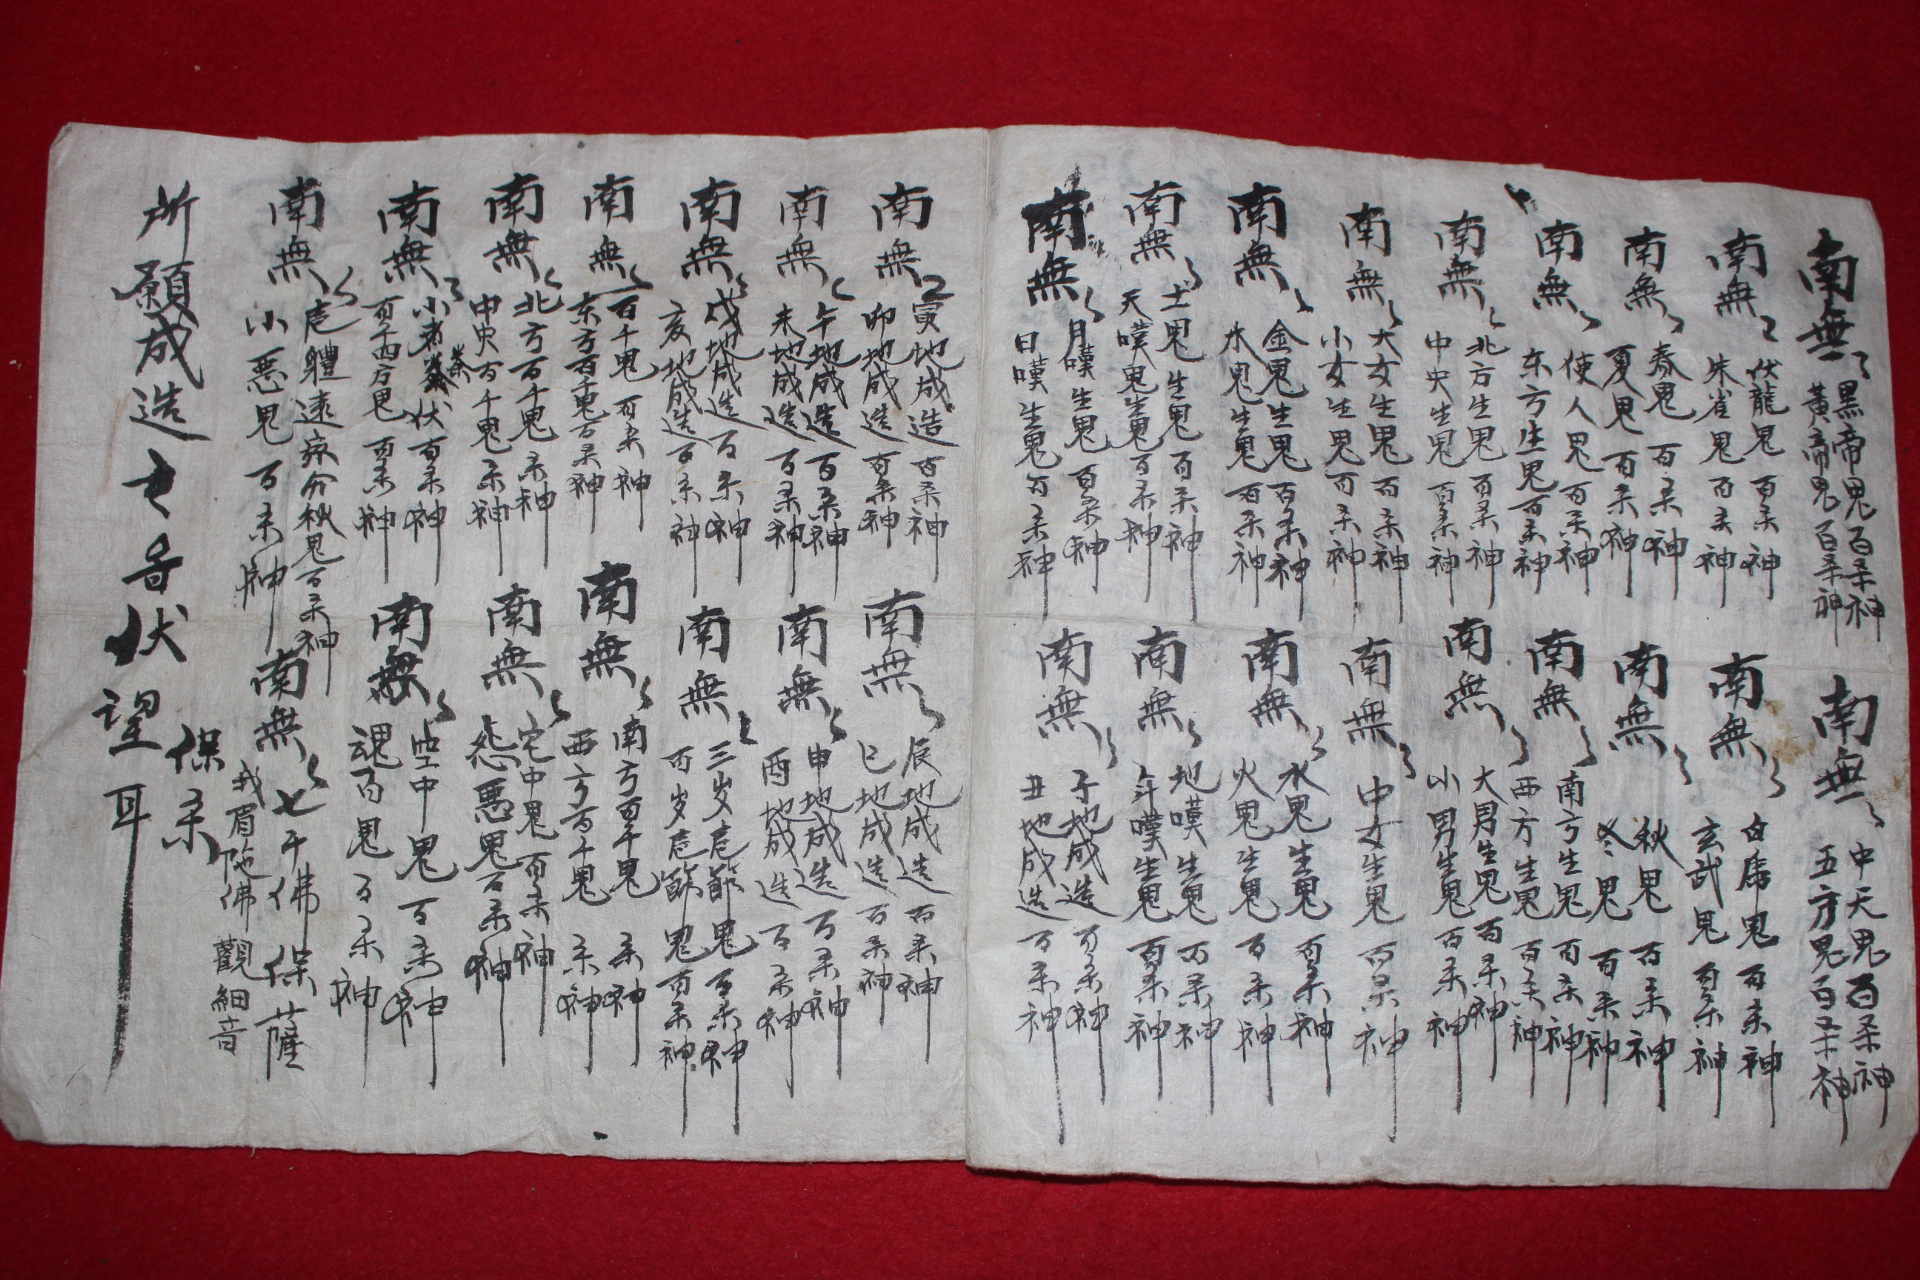 南無 黑帝鬼百杀神
黃帝鬼百杀神
南無 中天鬼百杀神
五方鬼百杀神
南無 伏龍鬼百杀神
朱雀鬼百杀神
南無 白虎鬼百杀神
玄武鬼百杀神
南無 春鬼百杀神
夏鬼百杀神
南無 秋鬼百杀神
冬鬼百杀神
南無 使人鬼百杀神
东方生鬼百杀神
南無 南方生鬼百杀神
西方生鬼百杀神
南無 北方生鬼百杀神
中央生鬼百杀神
南無 大男生鬼百杀神
小男生鬼百杀神
南無 大女生鬼百杀神
小女生鬼百杀神
南無 中女生鬼百杀神
南無 金鬼生鬼百杀神
木鬼生鬼百杀神
南無 水鬼生鬼百杀神
火鬼生鬼百杀神
南無 土鬼生鬼百杀神
天嘆鬼生鬼百杀神
南無 地嘆生鬼百杀神
年嘆生鬼百杀神
南無 月嘆生鬼百杀神
日嘆生鬼百杀神
南無 子地成造百杀神
丑地成造百杀神
南無 寅地成造百杀神
卯地成造百杀神
南無 辰地成造百杀神
巳地成造百杀神
南無 午地成造百杀神
未地成造百杀神
南無 申地成造百杀神
酉地成造百杀神
南無 戌地成造百杀神
亥地成造百杀神
南無 三岁鬼百杀神
百岁鬼百杀神
南無 百千鬼百杀神
东方百千鬼百杀神
南無 南方百千鬼杀神
西方百千鬼杀神
南無 北方百千鬼杀神
中央百千鬼杀神
南無 宅中鬼百杀神
怨惡鬼百杀神
南無 小伏百杀神
百千西方鬼百杀神
南無 空中鬼百杀神
魂百鬼百杀神
南無 體遠分秋鬼百杀神
小惡鬼百杀神
南無 七千佛保薩
我眉陀佛觀細音
保杀
所願成造伏望耳